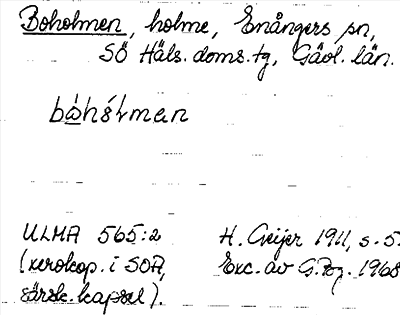 Boholmen, holme, Enångers sn,
SÖ Häls. doms. tg, Gävl. län.
ULMA 565:2 H. Geijer 1911, s. 5.
(xerokop. i SOA, Exc. av 1968
särsk. kapsel).